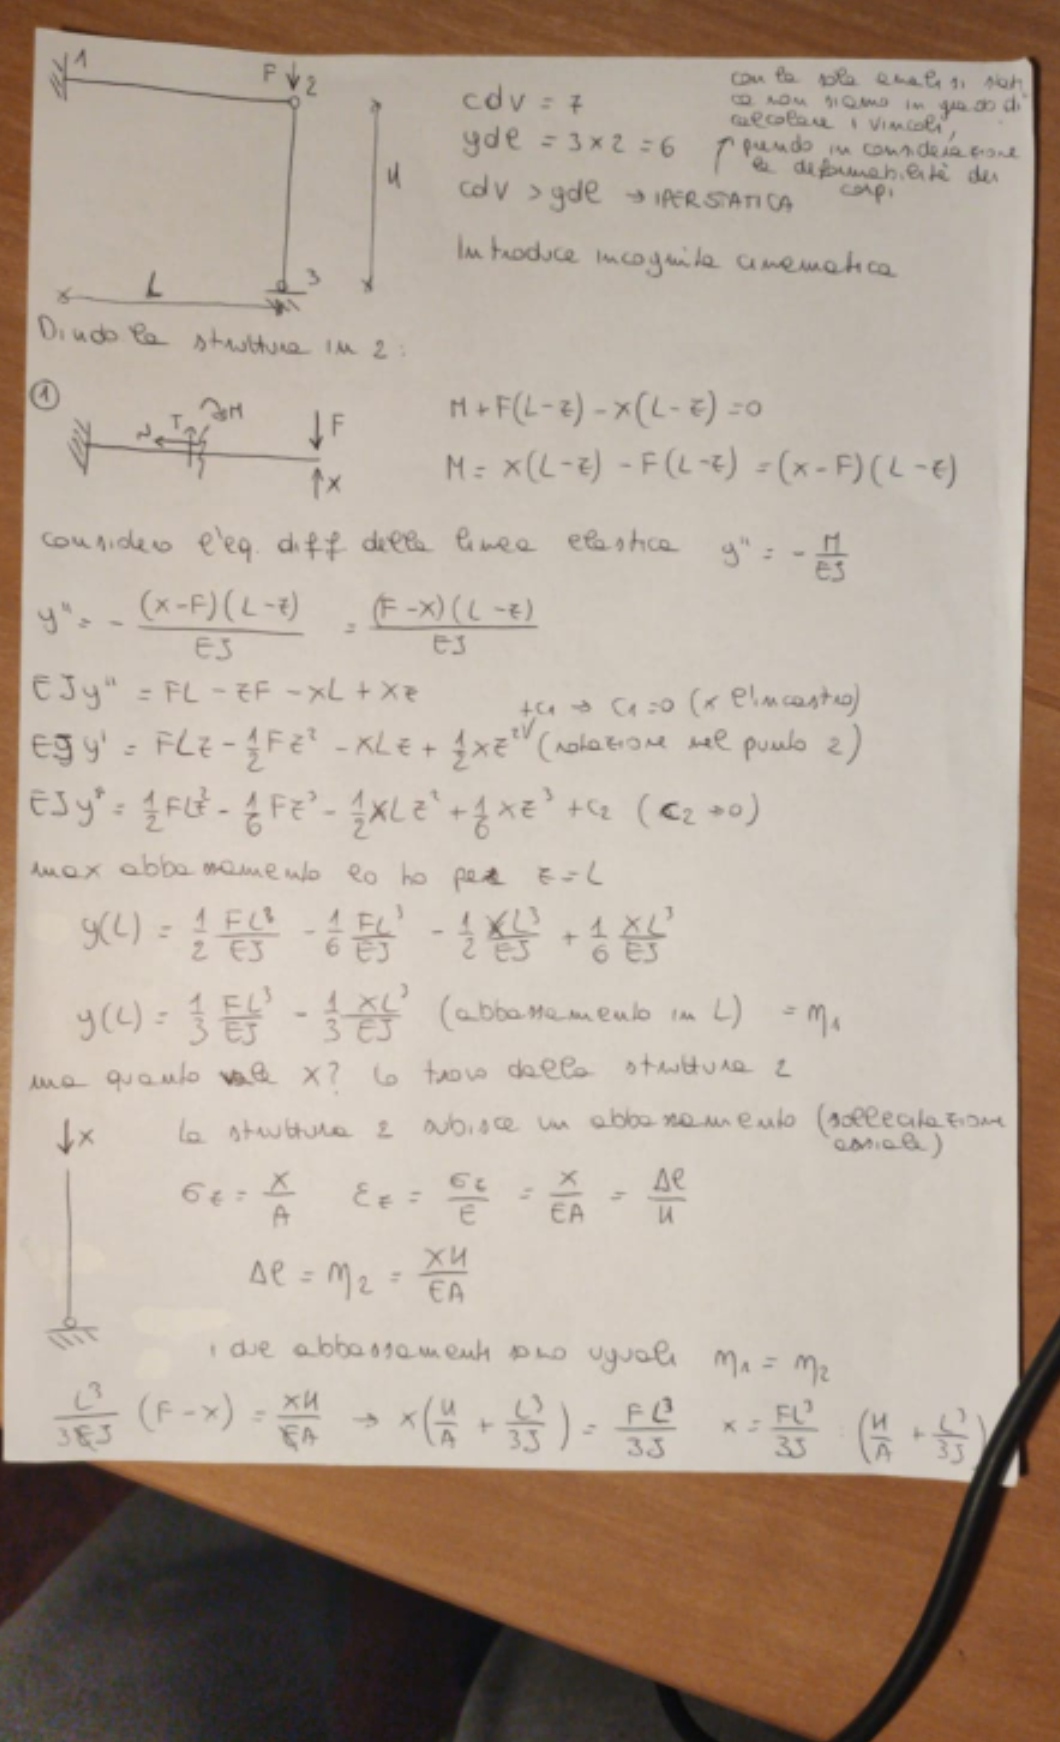 1
F 2
cdv = 7
gdl = 3 × 2 = 6
cdv > gdl → IPERSTATICA
con la sola analisi stati
ca non siamo in grado di
calcolare i vincoli,
prendo in considerazione
la deformabilità dei
corpi
H
Introduce incognita cinematica
3
L
Divido la struttura in 2:
①
N T M F
x
M + F(L-z) - x(L-z) = 0
M = x(L-z) - F(L-z) = (x-F)(L-z)
considero l'eq. diff della linea elastica y'' = - M/EJ
y'' = - (x-F)(L-z)/EJ = (F-x)(L-z)/EJ
EJy'' = FL - zF - xL + xz
+c1 → c1=0 (x l'incastro)
EJy' = FLz - 1/2 Fz² - xLz + 1/2 xz² (rotazione nel punto 2)
EJy = 1/2 FLz² - 1/6 Fz³ - 1/2 xLz² + 1/6 xz³ + c2 (c2→0)
max abbassamento lo ho per z = L
y(L) = 1/2 FL³/EJ - 1/6 FL³/EJ - 1/2 XL³/EJ + 1/6 XL³/EJ
y(L) = 1/3 FL³/EJ - 1/3 XL³/EJ (abbassamento in L) = η1
ma quanto vale x? lo trovo dalla struttura 2
↓x la struttura 2 subisce un abbassamento (sollecitazione
assiale)
σz = X/A εz = σz/E = X/EA = Δl/H
Δl = η2 = XH/EA
i due abbassamenti sono uguali η1 = η2
L³/3EJ (F-x) = XH/EA → x(H/A + L³/3J) = FL³/3J x = FL³/3J : (H/A + L³/3J)